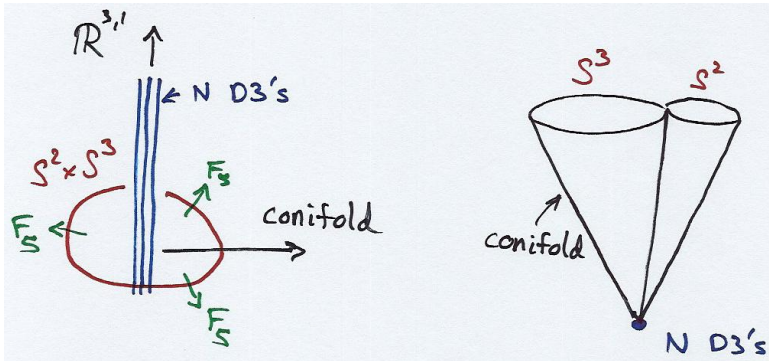 ℝ³,¹
N D3's
S² × S³
F₅
F₅
F₅
conifold
S³
S²
conifold
N D3's